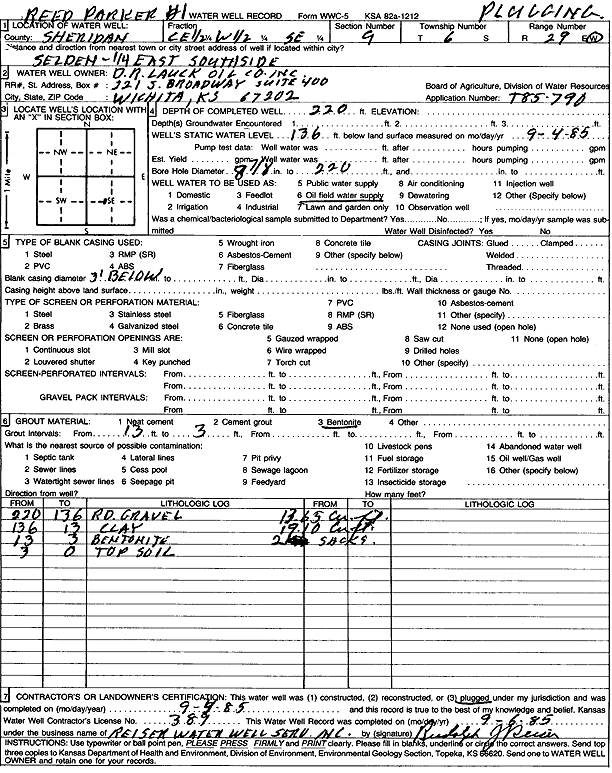 REED PARKER #1 WATER WELL RECORD Form WWC-5 KSA 82a-1212 PLUGGING
1 LOCATION OF WATER WELL: Fraction Section Number Township Number Range Number
County: SHERIDAN CE1/2 W1/2 ¼ SE ¼ 9 T 6 S R 29 E/W
Distance and direction from nearest town or city street address of well if located within city?
SELDEN - 1/4 EAST SOUTHSIDE
2 WATER WELL OWNER: D.R. LAUCK OIL CO. INC.
RR#, St. Address, Box # : 221 S. BROADWAY SUITE 400 Board of Agriculture, Division of Water Resources
City, State, ZIP Code : WICHITA, KS 67202 Application Number: T85-790
3 LOCATE WELL'S LOCATION WITH AN "X" IN SECTION BOX:
N
NW NE
W E
SW SE
S
1 Mile
4 DEPTH OF COMPLETED WELL 220 ft. ELEVATION:
Depth(s) Groundwater Encountered 1. ft. 2. ft. 3. ft.
WELL'S STATIC WATER LEVEL 136 ft. below land surface measured on mo/day/yr 9-4-85
Pump test data: Well water was ft. after hours pumping gpm
Est. Yield gpm Well water was ft. after hours pumping gpm
Bore Hole Diameter 8 7/8 in. to 220 ft., and in. to ft.
WELL WATER TO BE USED AS: 5 Public water supply 8 Air conditioning 11 Injection well
1 Domestic 3 Feedlot 6 Oil field water supply 9 Dewatering 12 Other (Specify below)
2 Irrigation 4 Industrial 7 Lawn and garden only 10 Observation well
Was a chemical/bacteriological sample submitted to Department? Yes No ; If yes, mo/day/yr sample was submitted Water Well Disinfected? Yes No
5 TYPE OF BLANK CASING USED: 5 Wrought iron 8 Concrete tile CASING JOINTS: Glued Clamped
1 Steel 3 RMP (SR) 6 Asbestos-Cement 9 Other (specify below) Welded
2 PVC 4 ABS 7 Fiberglass Threaded
Blank casing diameter 3' BELOW in. to ft., Dia in. to ft., Dia in. to ft.
Casing height above land surface in., weight lbs./ft. Wall thickness or gauge No.
TYPE OF SCREEN OR PERFORATION MATERIAL: 7 PVC 10 Asbestos-cement
1 Steel 3 Stainless steel 5 Fiberglass 8 RMP (SR) 11 Other (specify)
2 Brass 4 Galvanized steel 6 Concrete tile 9 ABS 12 None used (open hole)
SCREEN OR PERFORATION OPENINGS ARE: 5 Gauzed wrapped 8 Saw cut 11 None (open hole)
1 Continuous slot 3 Mill slot 6 Wire wrapped 9 Drilled holes
2 Louvered shutter 4 Key punched 7 Torch cut 10 Other (specify)
SCREEN-PERFORATED INTERVALS: From ft. to ft., From ft. to ft.
From ft. to ft., From ft. to ft.
GRAVEL PACK INTERVALS: From ft. to ft., From ft. to ft.
From ft. to ft., From ft. to ft.
6 GROUT MATERIAL: 1 Neat cement 2 Cement grout 3 Bentonite 4 Other
Grout Intervals: From 13 ft. to 3 ft., From ft. to ft., From ft. to ft.
What is the nearest source of possible contamination: 10 Livestock pens 14 Abandoned water well
1 Septic tank 4 Lateral lines 7 Pit privy 11 Fuel storage 15 Oil well/Gas well
2 Sewer lines 5 Cess pool 8 Sewage lagoon 12 Fertilizer storage 16 Other (specify below)
3 Watertight sewer lines 6 Seepage pit 9 Feedyard 13 Insecticide storage
Direction from well? How many feet?
FROM TO LITHOLOGIC LOG FROM TO LITHOLOGIC LOG
220 136 RD. GRAVEL 13.65 Cu.ft.
136 13 CLAY 19.10 Cu.ft.
13 3 BENTONITE SACKS.
3 0 TOP SOIL
7 CONTRACTOR'S OR LANDOWNER'S CERTIFICATION: This water well was (1) constructed, (2) reconstructed, or (3) plugged under my jurisdiction and was
completed on (mo/day/year) 9-4-85 and this record is true to the best of my knowledge and belief. Kansas
Water Well Contractor's License No. 389 This Water Well Record was completed on (mo/day/yr) 9-6-85
under the business name of REISER WATER WELL SERV. INC. by (signature) Rudolph J Reiser
INSTRUCTIONS: Use typewriter or ball point pen, PLEASE PRESS FIRMLY and PRINT clearly. Please fill in blanks, underline or circle the correct answers. Send top
three copies to Kansas Department of Health and Environment, Division of Environment, Environmental Geology Section, Topeka, KS 66620. Send one to WATER WELL
OWNER and retain one for your records.